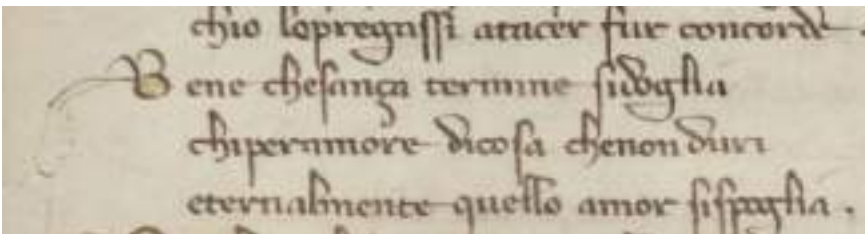 chio lopregassi atacer fur concordi.
Bene chesança termine sidoglia
chiperamore dicosa chenon duri
eternalmente quello amor sispoglia.